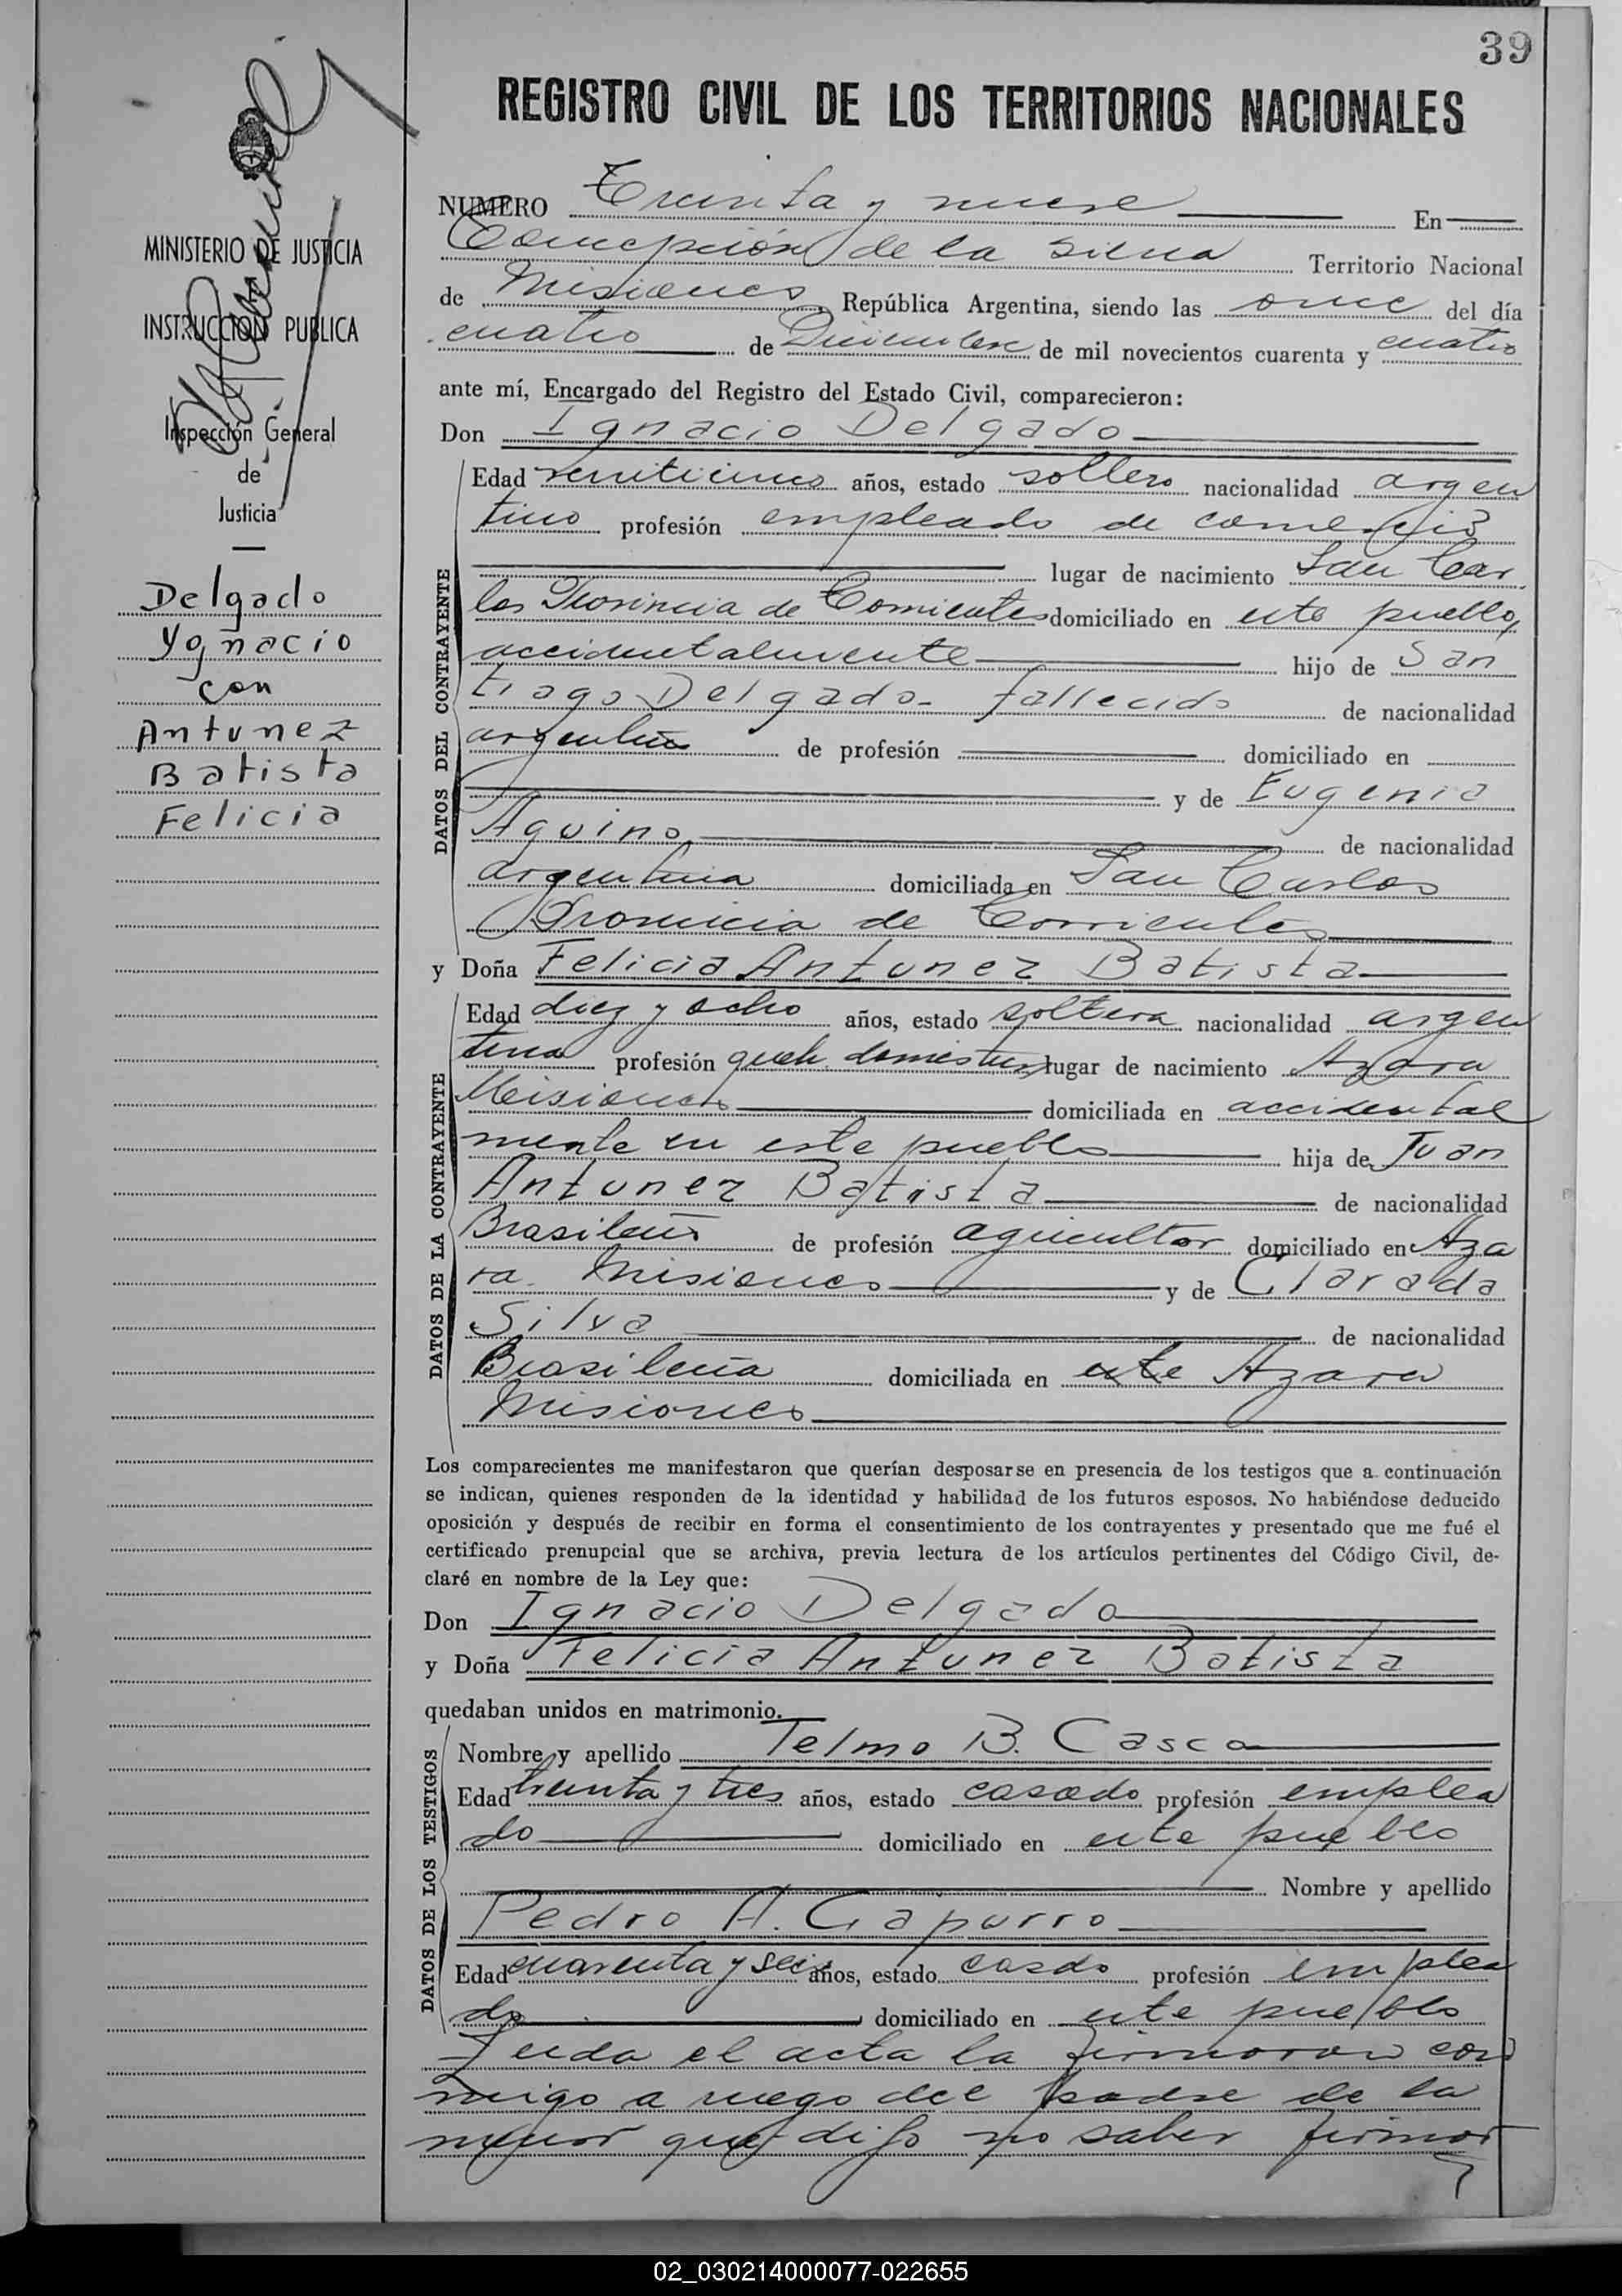 39
REGISTRO CIVIL DE LOS TERRITORIOS NACIONALES
NUMERO Treinta y nueve En
Concepción de la Sierra Territorio Nacional
de Misiones, República Argentina, siendo las once del día
cuatro de Diciembre de mil novecientos cuarenta y cuatro
ante mí, Encargado del Registro del Estado Civil, comparecieron:
Don Ignacio Delgado
Edad veinticinco años, estado soltero nacionalidad argen
tino profesión empleado de comercio
lugar de nacimiento San Car
los Provincia de Corrientes domiciliado en este pueblo,
accidentalmente hijo de San
tiago Delgado - fallecido de nacionalidad
argentino de profesión domiciliado en
y de Eugenia
Aquino de nacionalidad
argentina domiciliada en San Carlos
Provincia de Corrientes
y Doña Felicia Antunez Batista
Edad diez y ocho años, estado soltera nacionalidad argen
tina profesión queh. domésticos lugar de nacimiento Azara
Misiones domiciliada en accidental
mente en este pueblo hija de Juan
Antunez Batista de nacionalidad
Brasileño de profesión agricultor domiciliado en Aza
ra. Misiones y de Clara da
Silva de nacionalidad
Brasileña domiciliada en este Azara
Misiones
Los comparecientes me manifestaron que querían desposarse en presencia de los testigos que a continuación
se indican, quienes responden de la identidad y habilidad de los futuros esposos. No habiéndose deducido
oposición y después de recibir en forma el consentimiento de los contrayentes y presentado que me fué el
certificado prenupcial que se archiva, previa lectura de los artículos pertinentes del Código Civil, de-
claré en nombre de la Ley que:
Don Ignacio Delgado
y Doña Felicia Antunez Batista
quedaban unidos en matrimonio.
Nombre y apellido Telmo B. Casco
Edad treinta y tres años, estado casado profesión emplea
do domiciliado en este pueblo
Nombre y apellido
Pedro A. Gapurro
Edad cuarenta y seis años, estado casdo profesión emplea
do domiciliado en este pueblo
Leida el acta la firmaron con
migo a ruego del padre de la
menor que dijo no saber firmar
DATOS DEL CONTRAYENTE
DATOS DE LA CONTRAYENTE
DATOS DE LOS TESTIGOS
MINISTERIO DE JUSTICIA
INSTRUCCION PUBLICA
Inspección General
de
Justicia
Delgado
Ygnacio
con
Antunez
Batista
Felicia
02_030214000077-022655